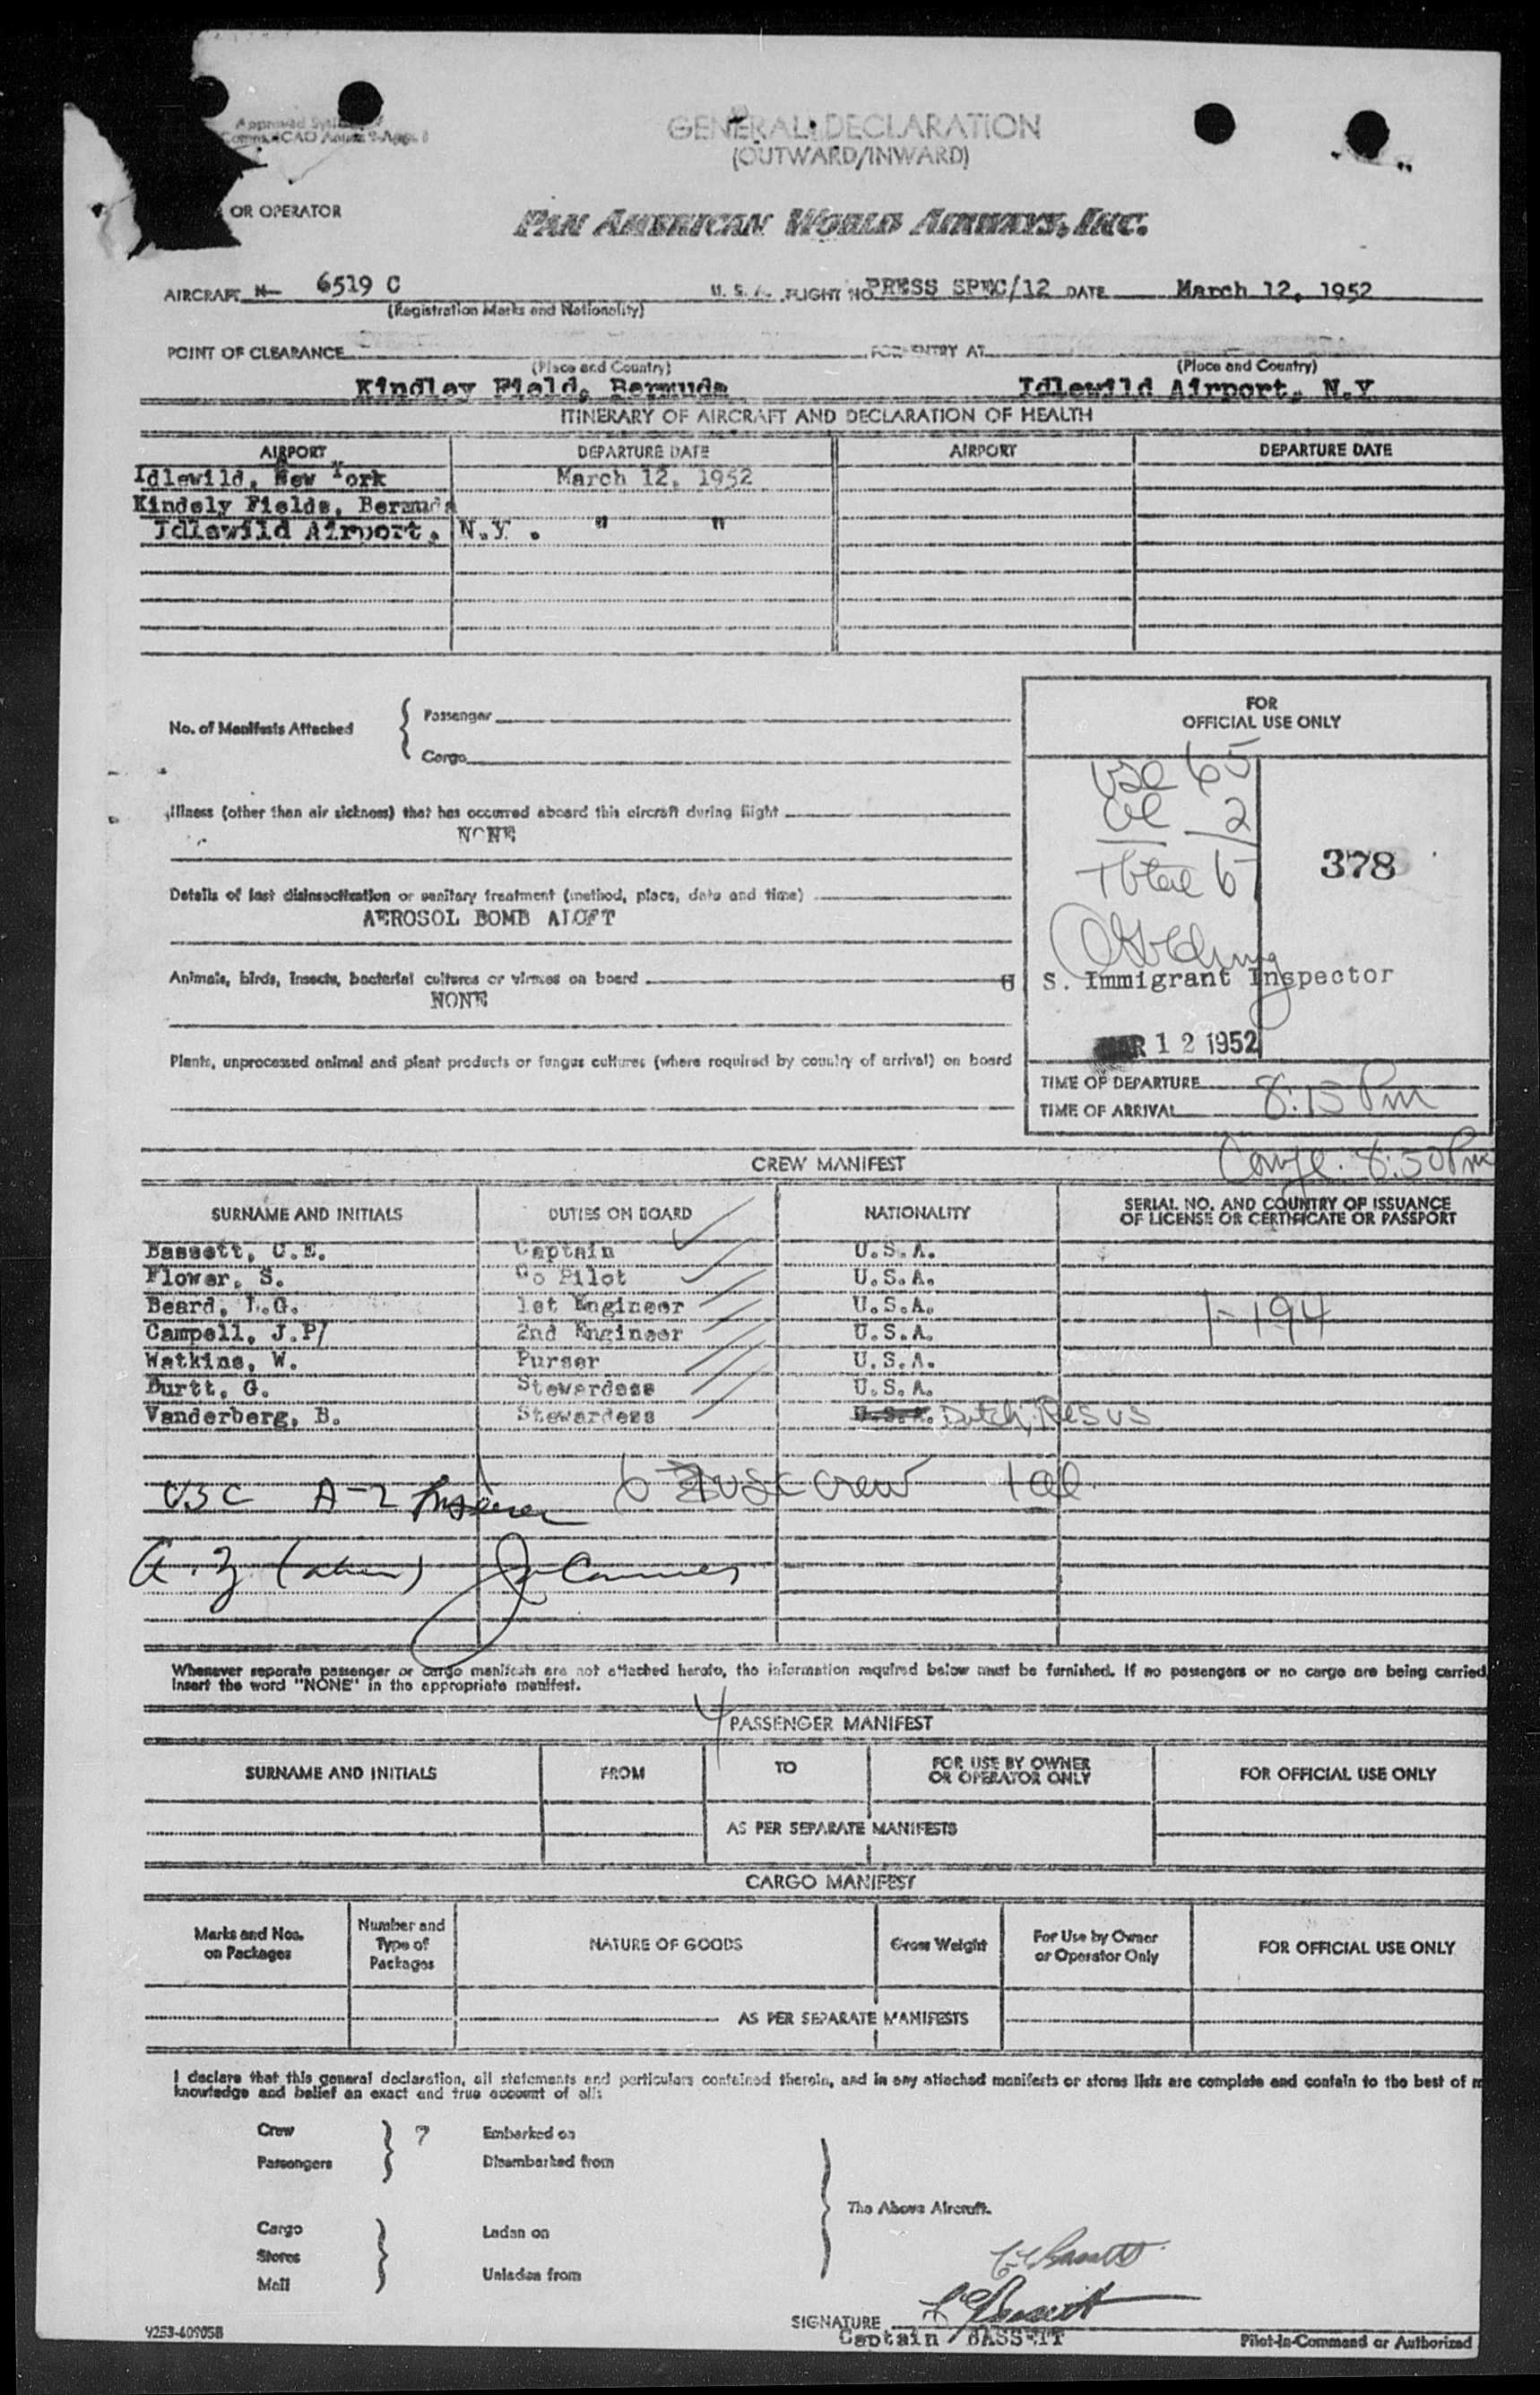 GENERAL DECLARATION
(OUTWARD/INWARD)
OR OPERATOR
PAN AMERICAN WORLD AIRWAYS, INC.
AIRCRAFT N 6519 C U. S. A. FLIGHT NO PRESS SPEC/12 DATE March 12, 1952
(Registration Marks and Nationality)
POINT OF CLEARANCE FOR ENTRY AT
(Place and Country) (Place and Country)
Kindley Field, Bermuda Idlewild Airport, N.Y.
ITINERARY OF AIRCRAFT AND DECLARATION OF HEALTH
AIRPORT DEPARTURE DATE AIRPORT DEPARTURE DATE
Idlewild, New York March 12, 1952
Kindely Fields, Bermuda
Idlewild Airport, N.Y. " "
No. of Manifests Attached
Passenger
Cargo
FOR
OFFICIAL USE ONLY
USC 65
al 2
Total 67
378
Illness (other than air sickness) that has occurred aboard this aircraft during flight
NONE
Details of last disinsectization or sanitary treatment (method, place, date and time)
AEROSOL BOMB ALOFT
Animals, birds, insects, bacterial cultures or viruses on board
U S. Immigrant Inspector
NONE
MAR 12 1952
Plants, unprocessed animal and plant products or fungus cultures (where required by country of arrival) on board
TIME OF DEPARTURE
TIME OF ARRIVAL 8:15 Pm
Compl. 8:50 Pm
CREW MANIFEST
SURNAME AND INITIALS DUTIES ON BOARD NATIONALITY SERIAL NO. AND COUNTRY OF ISSUANCE
OF LICENSE OR CERTIFICATE OR PASSPORT
Bassett, C.E. Captain U.S.A.
Flower, S. Co Pilot U.S.A.
Beard, L.G. 1st Engineer U.S.A.
1-194
Campell, J.P/ 2nd Engineer U.S.A.
Watkins, W. Purser U.S.A.
Burtt, G. Stewardess U.S.A.
Vanderberg, B. Stewardess U.S.A. Dutch, Res US
USC A-2 6 7 USC crew 1 al
Whenever separate passenger or cargo manifests are not attached hereto, the information required below must be furnished. If no passengers or no cargo are being carried,
insert the word "NONE" in the appropriate manifest.
4
PASSENGER MANIFEST
SURNAME AND INITIALS FROM TO FOR USE BY OWNER
OR OPERATOR ONLY FOR OFFICIAL USE ONLY
AS PER SEPARATE MANIFESTS
CARGO MANIFEST
Marks and Nos.
on Packages
Number and
Type of
Packages
NATURE OF GOODS
Gross Weight
For Use by Owner
or Operator Only
FOR OFFICIAL USE ONLY
AS PER SEPARATE MANIFESTS
I declare that this general declaration, all statements and particulars contained therein, and in any attached manifests or stores lists are complete and contain to the best of m
knowledge and belief an exact and true account of all:
Crew 7 Embarked on
Passengers Disembarked from
The Above Aircraft.
Cargo Laden on
Stores
Mail Unladen from
CE Bassett
SIGNATURE CE Bassett
Captain BASSETT Pilot-in-Command or Authorized
9253-40905B